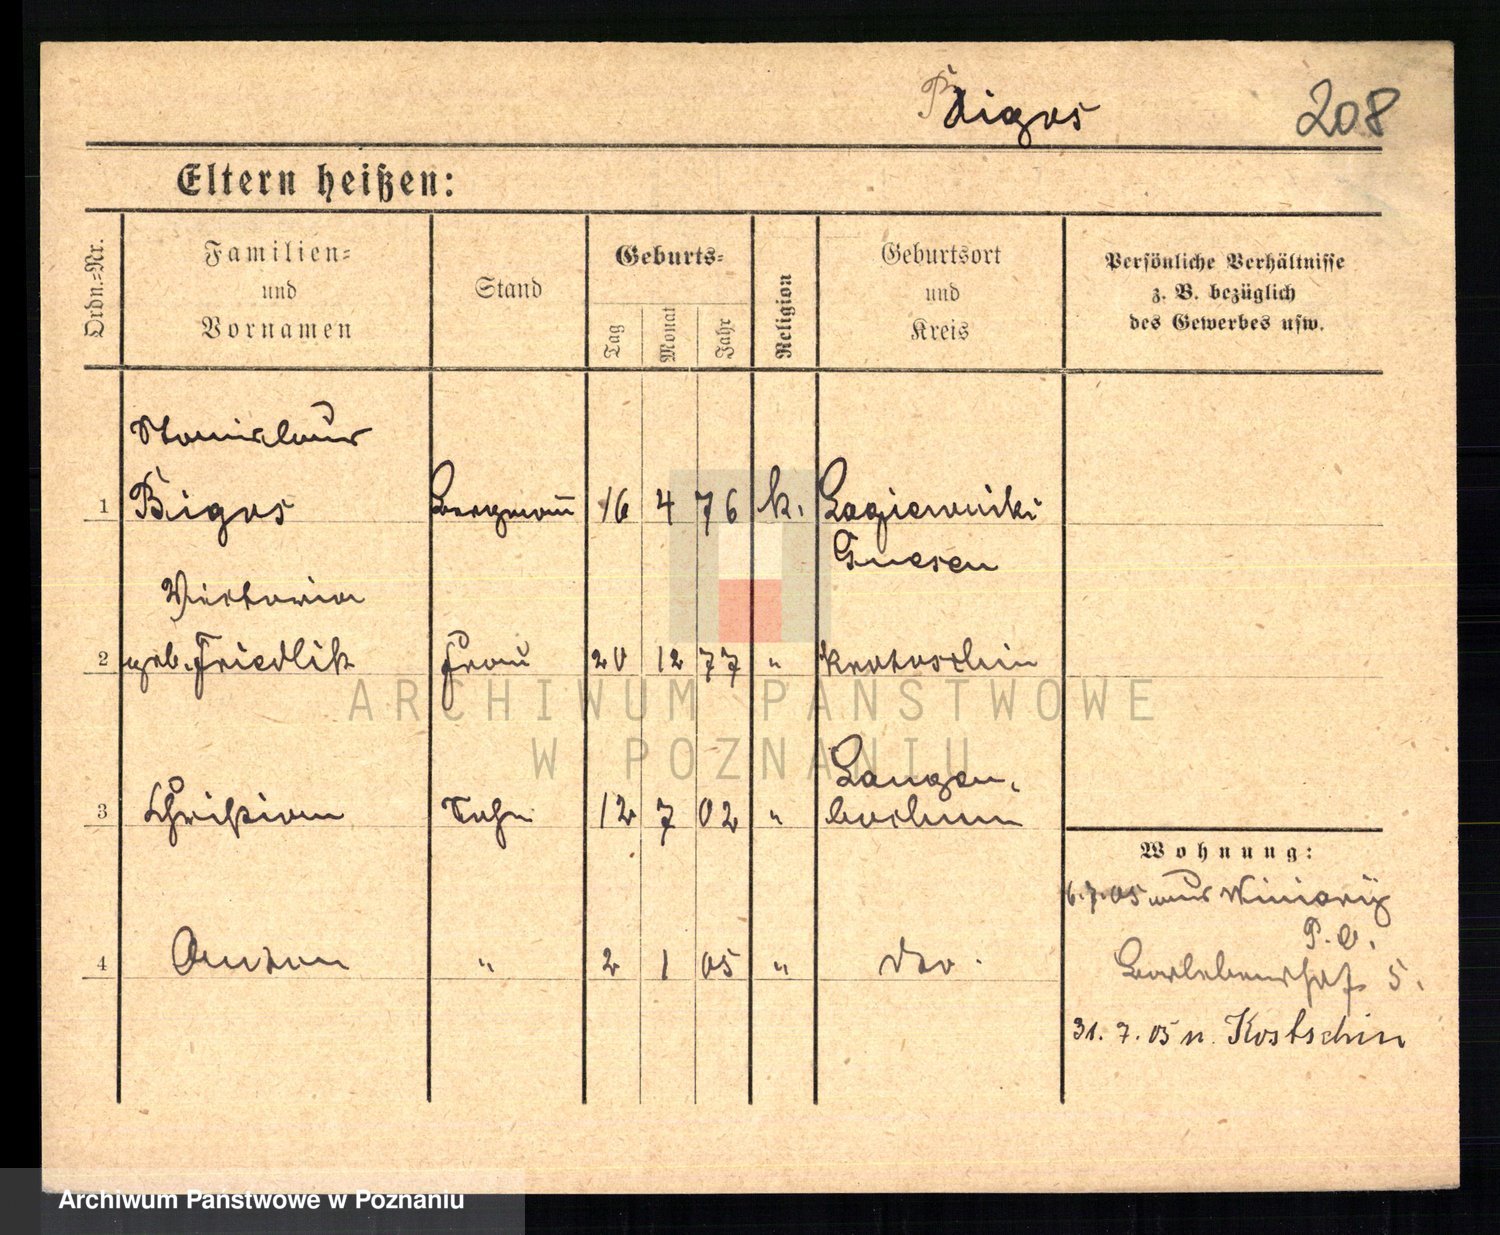 Bigos 208
Eltern heißen:
Ordn.-Nr.
Familien-
und
Vornamen
Stand
Geburts-
Tag
Monat
Jahr
Religion
Geburtsort
und
Kreis
Persönliche Verhältnisse
z. B. bezüglich
des Gewerbes usw.
Stanislaus
1 Bigos Bergmann 16 4 76 k. Lagiewniki
Gnesen
Victoria
2 geb. Friedlik Frau 20 12 77 " Krotoschin
Langen-
3 Christian Sohn 12 7 02 " bochum
Wohnung:
6.7.05 aus Winiary
P. O.
4 Anton " 2 1 05 " dto.
5.
31. 7. 05 n. Kostschin
ARCHIWUM PAŃSTWOWE
W POZNANIU
Archiwum Państwowe w Poznaniu